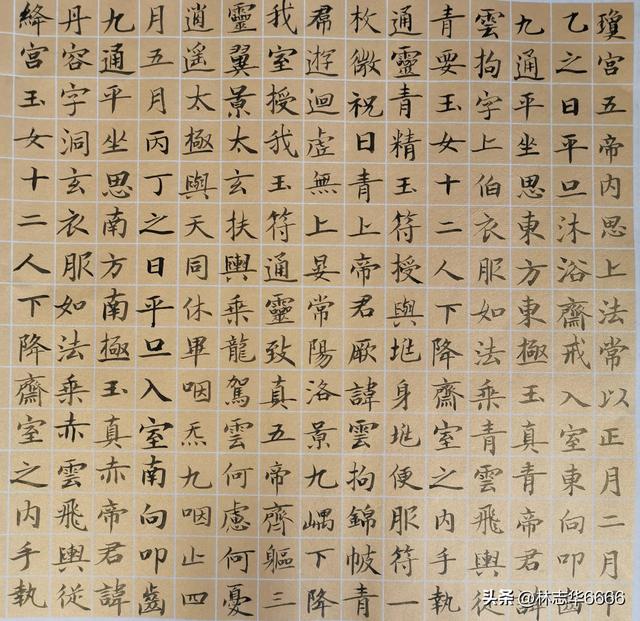 瓊宮五帝內思上法常以正月二月
乙之日平旦沐浴齋戒入室東向叩齒
九通平坐思東方東極玉真青帝君諱
雲拘字上伯衣服如法乘青雲飛輿從
青要玉女十二人下降齋室之內手執
通靈青精玉符授與垗身垗便服符一
枚微祝曰青上帝君厥諱雲拘錦帔青
帬遊迴虛無上晏常陽洛景九嵎下降
我室授我玉符通靈致真五帝齊軀三
靈翼景太玄扶輿乘龍駕雲何慮何憂
逍遙太極與天同休畢咽炁九咽止四
月五月丙丁之日平旦入室南向叩齒
九通平坐思南方南極玉真赤帝君諱
丹容字洞玄衣服如法乘赤雲飛輿從
絳宮玉女十二人下降齋室之內手執
头条 @林志华6666